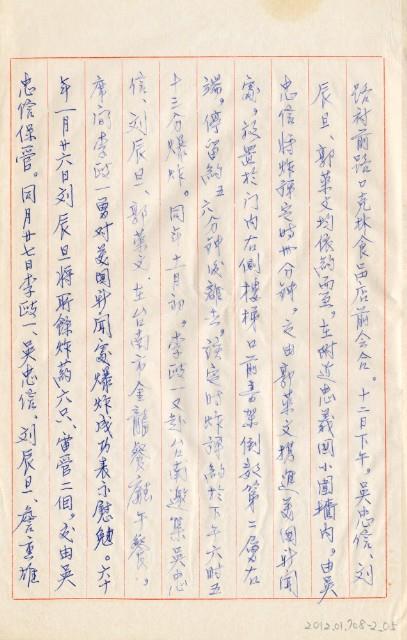 路對前路口克林食品店前会合。十二日下午。吳忠信、刘
辰旦、郭荣文均依約而至。在附近忠義国小圍墻内。由吳
忠信將炸弹定時卅分鐘。交由郭荣文携進美国新闻
處。放置於门内右側樓梯口前書架倒数第二層右
端。停留約五六分钟後離去。該定時炸弹約於下午六時五
十三分爆炸。同年十一月初。李政一又赴台南邀集吳忠
信、刘辰旦、郭荣文、在台南市金龍餐廳午餐。
席间李政一曾对美国新闻處爆炸成功表示慰勉。六十
年一月廿六日刘辰旦將所餘炸葯六只、雷管二個。交由吳
忠信保管。同月廿七日李政一、吳忠信、刘辰旦、詹重雄
2012.01.708-2_05